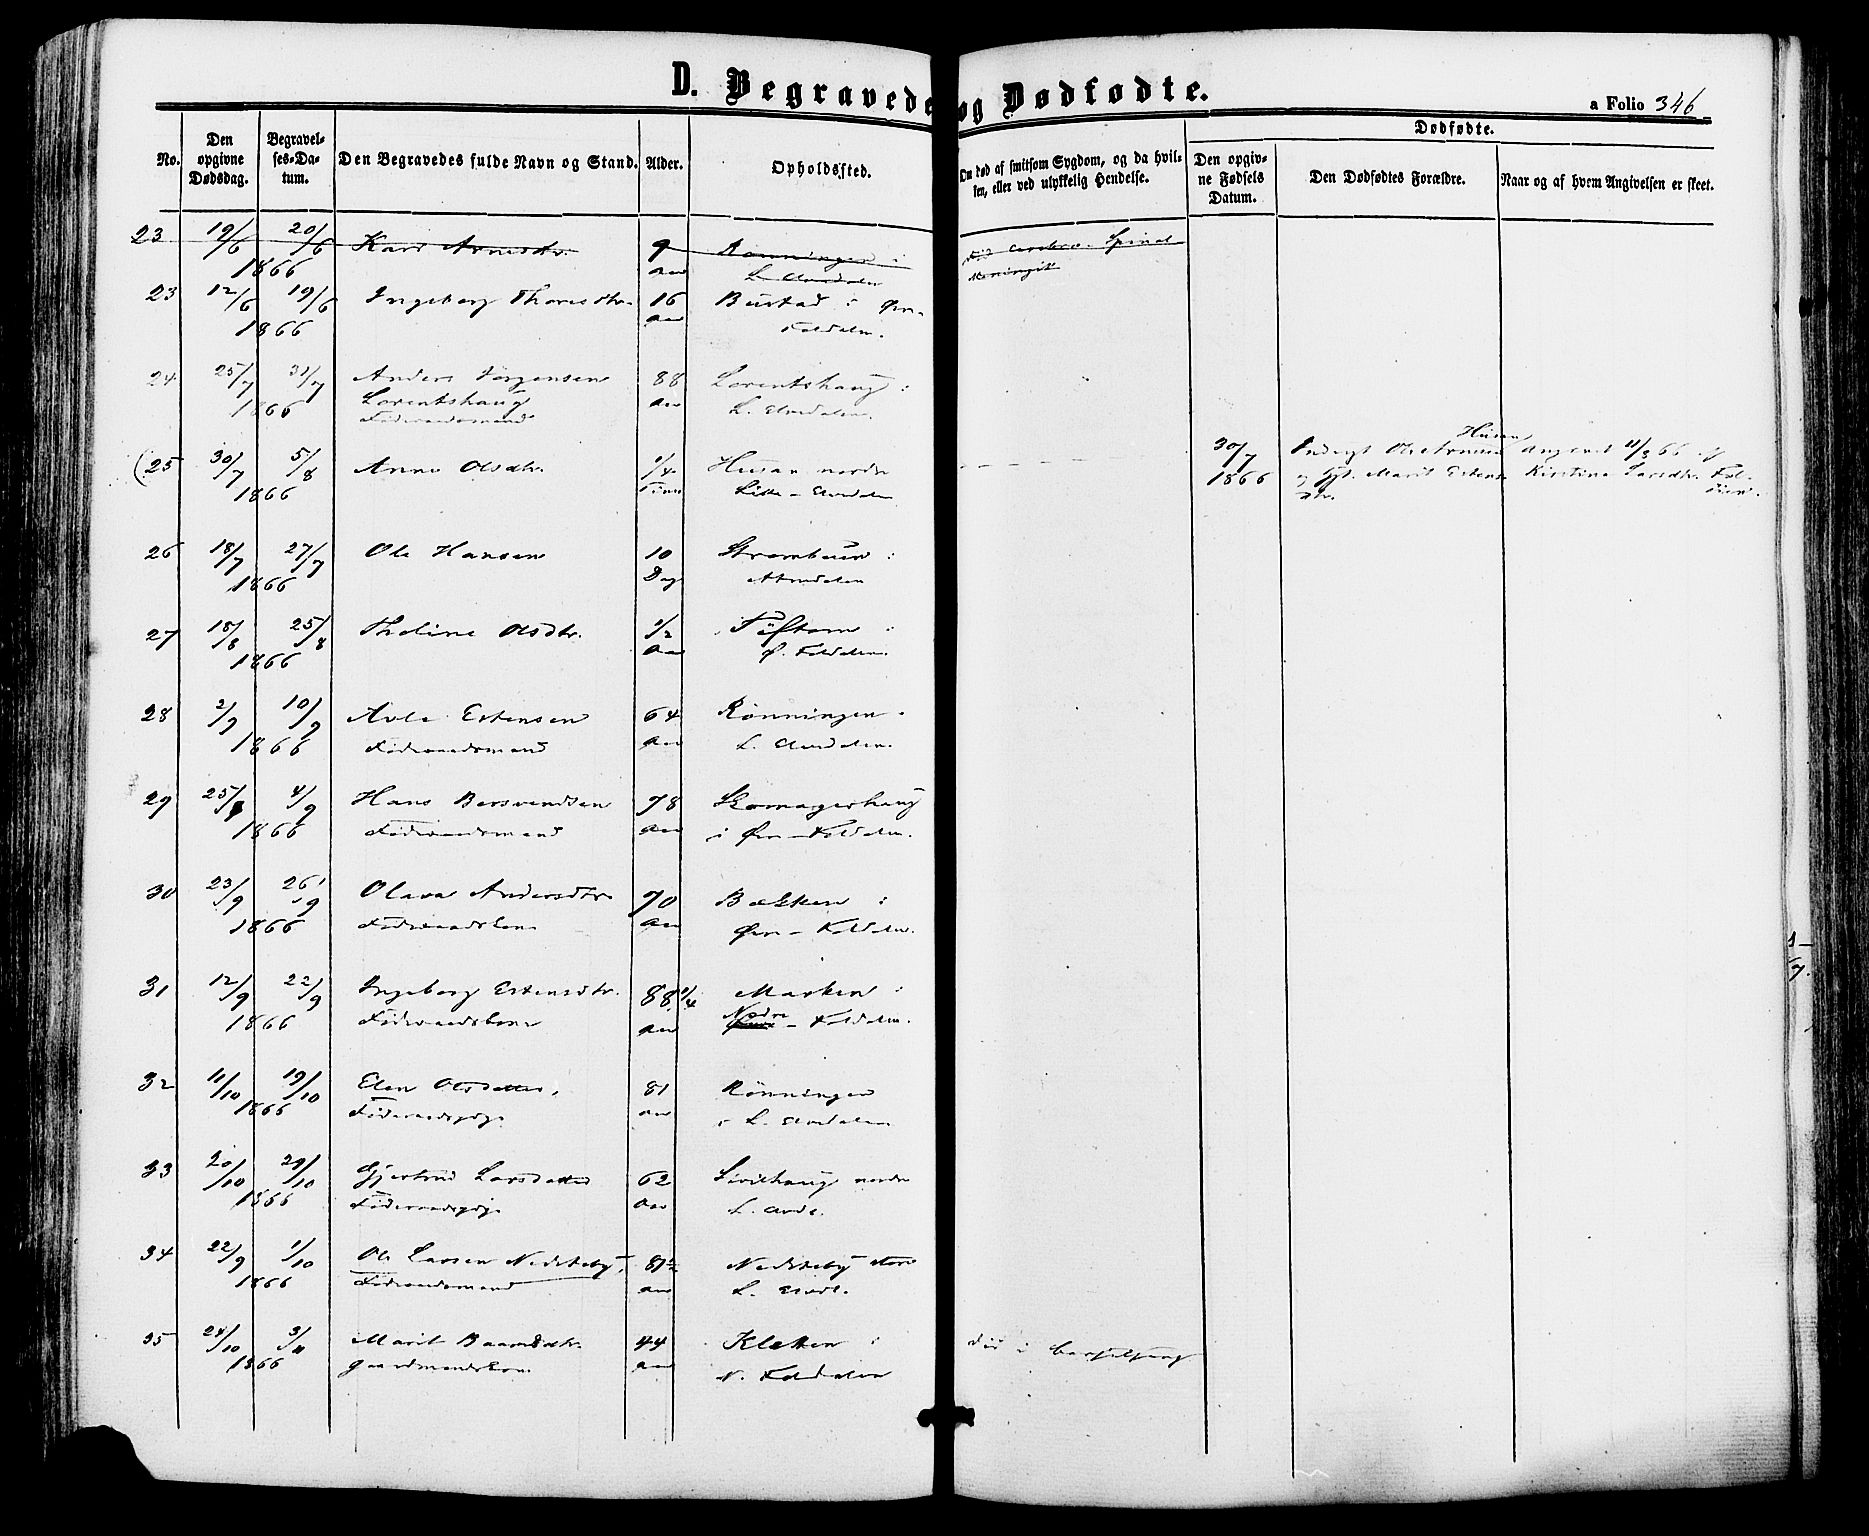 D. Begravede og Dødfødte.
a Folio 346
No.
Den opgivne Dødsdag.
Begravelses-Datum.
Den Begravedes fulde Navn og Stand.
Alder.
Opholdssted.
Om død af smitsom Sygdom, og da hvilken, eller ved ulykkelig Hendelse.
Dødfødte.
Den opgivne Fødsels Datum.
Den Dødfødtes Forældre.
Naar og af hvem Angivelsen er skeet.
23 19/6 20/6 Kari Arnesdtr. 9 Rønningen i
1866 Aar
Meningit
23 12/6 19/6 Ingeborg Thoresdtr. 16 Bustad i Øvr-
1866 Aar Foldalen.
24 25/7 31/7 Anders Jørgensen 88 Lorentshaug i
1866 Lorentshaug Aar L. Elvedalen.
Føderaadsmand
25 30/7 5/8 Anne Olsdtr. 1/4 Husan nordre
1866 Time Lille-Elvedalen
30/7
1866
Husan
Indergst Ole Arnesen
og Gft. Marit Estens-
dtr.
Kirstine Larsdtr.
26 18/7 27/7 Ole Hansen 10 Strømbuen i
1866 Dag Atnedalen
27 18/8 25/8 Theline Olsdtr. 1/2
1866 Aar Ø. Foldalen.
28 2/9 10/9 Estensen 64 Rönningen
1866 Føderaadsmand Aar L. Elvedalen.
29 25/8 4/9 Hans Bersvendsen 78 Skomagerhaug
1866 Føderaadsmand Aar i Øvre-Foldalen.
30 23/9 26/9 Olava Andersdtr. 70 Bækken i
1866 Føderaadskone Aar Øvre-Foldalen.
31 12/9 22/9 Ingeborg Estensdtr. 88 1/4 Marken i
1866 Føderaadskone Aar Nedre Foldalen.
32 11/10 19/10 Elen Olsdatter, 81 Rönningen
1866 Føderaadspige Aar i L. Elvedalen
33 20/10 29/10 Gjertrud Larsdatter 62 Sivilhaug nordre
1866 Føderaadspige Aar L. Elvd.
34 22/9 1/10 Ole Larsen Nedsteby, 81 1/2 Nedsteby store
1866 Føderaadsmand Aar L. Elvd.
35 24/10 3/11 Marit Baardsdtr. 44 Kletten i
1866 Gaardmandskone Aar N. Foldalen
Död i Barselseng